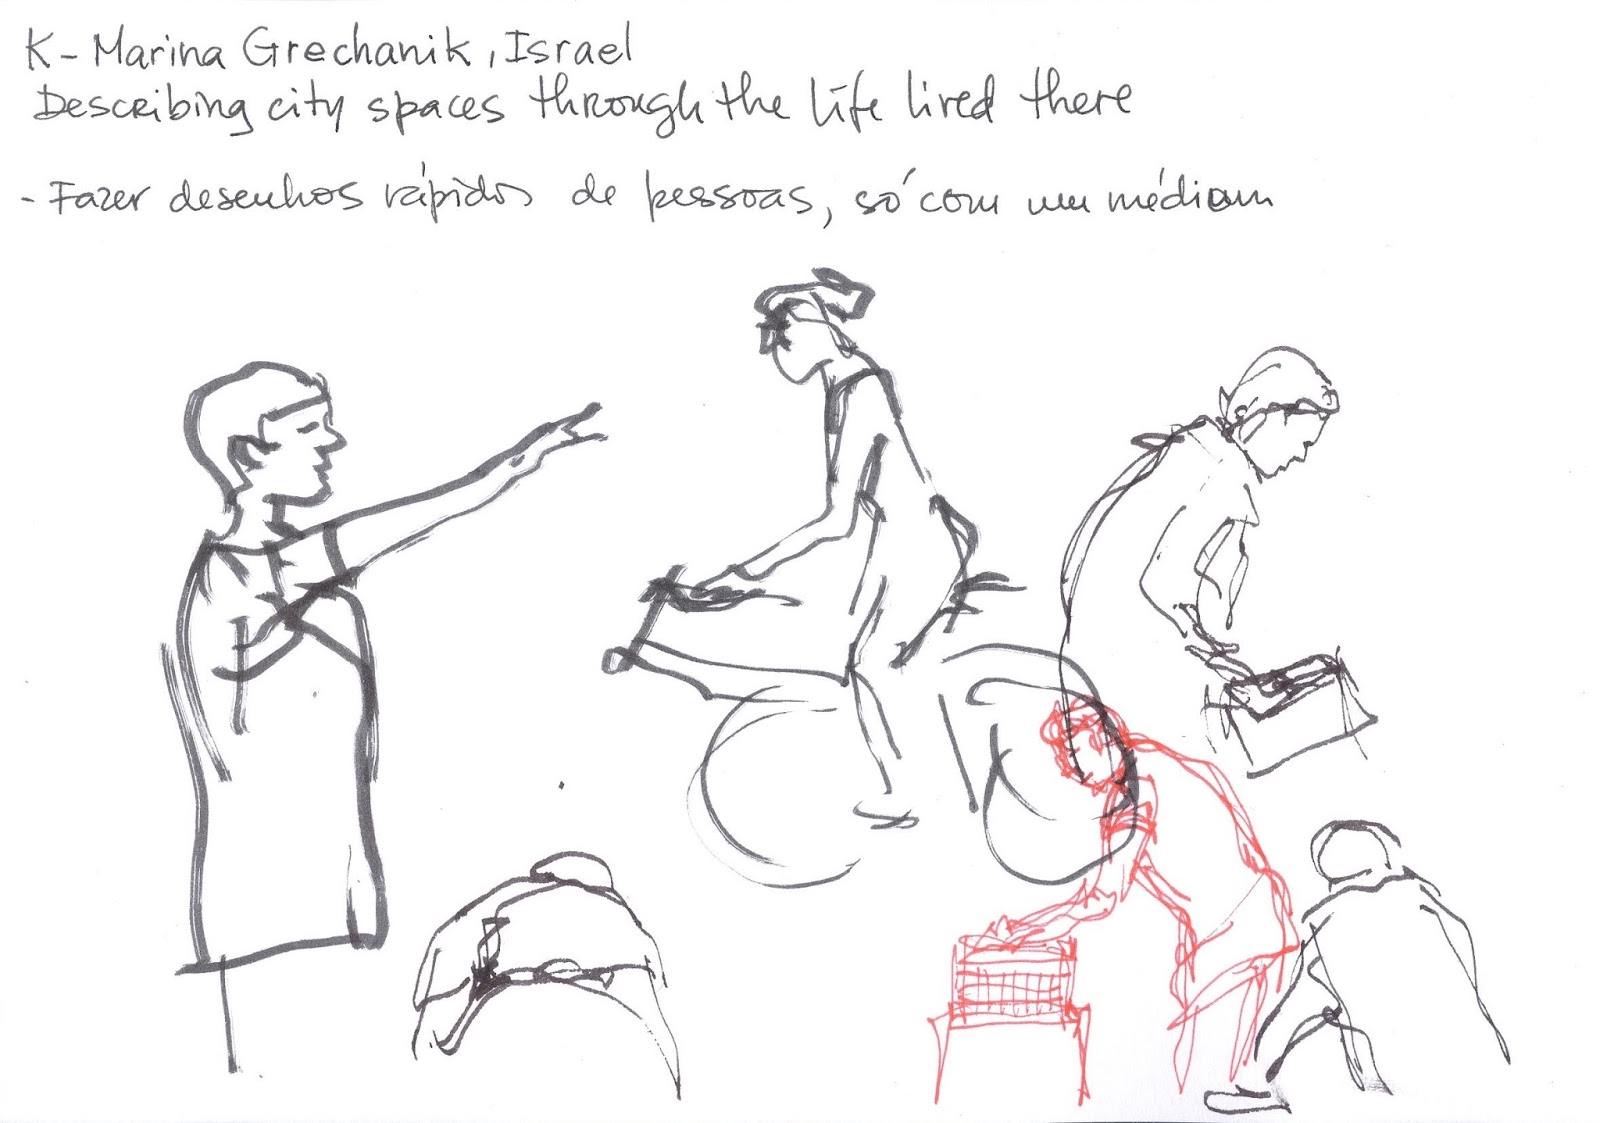 K - Marina Grechanik, Israel
Describing city spaces through the life lived there
- Fazer desenhos rápidos de pessoas, só com um médium